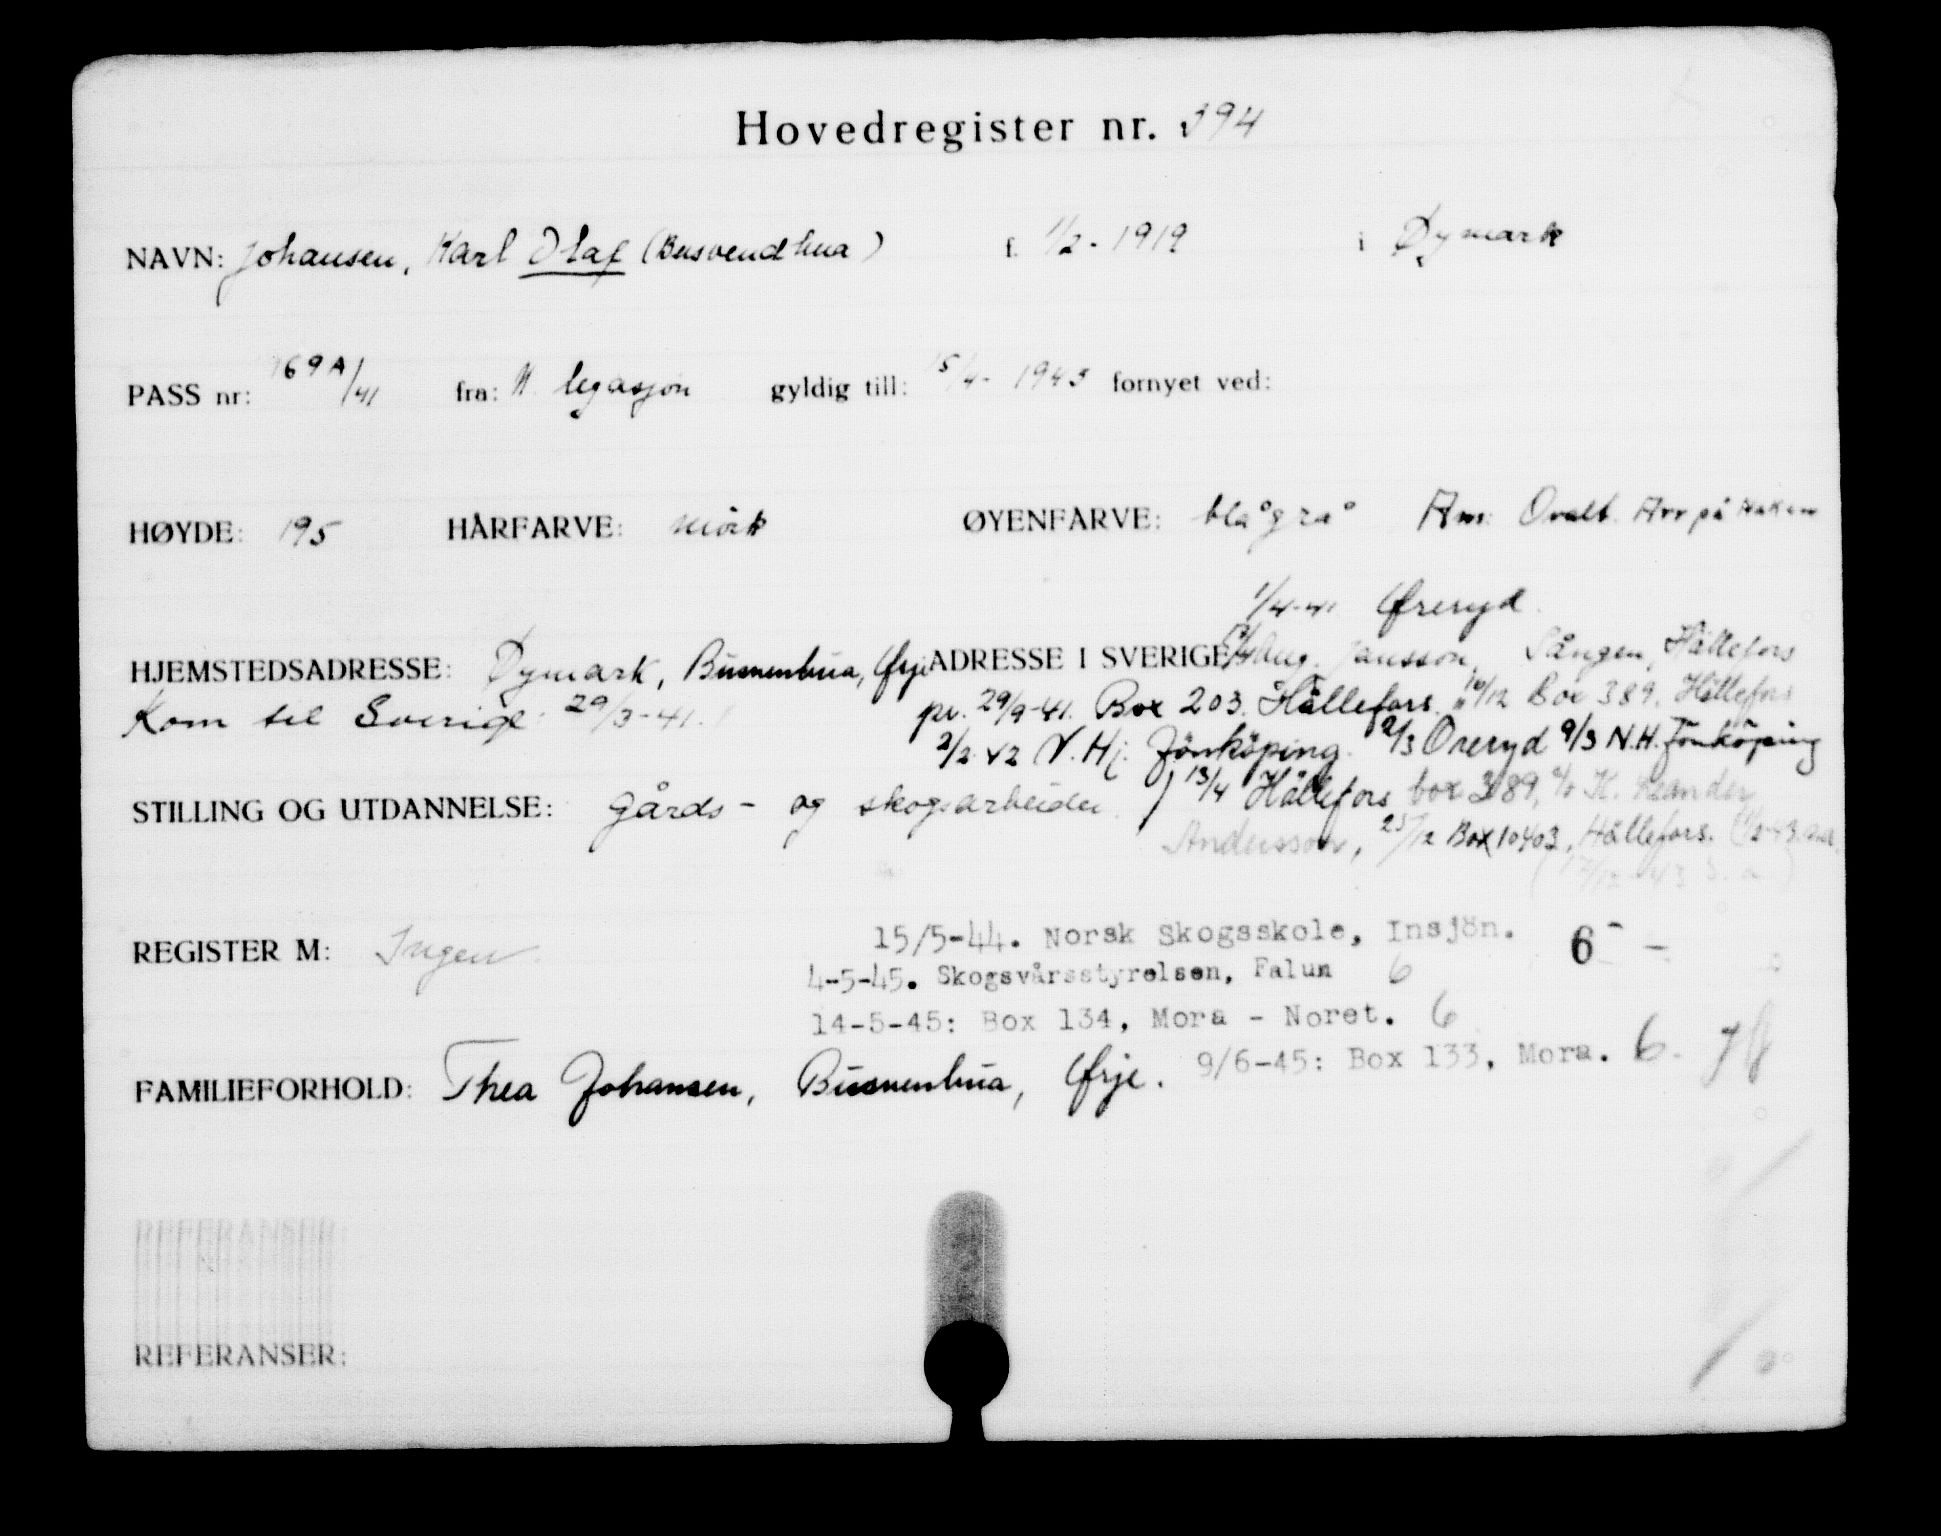 Hovedregister nr. 394
NAVN: Johansen, Karl Olaf (Busvendhua) f. 1/2 - 1919 i Øymark
PASS nr: 169 A/41 fra: N. legasjon gyldig till: 15/4 - 1943 fornyet ved:
HØYDE: 195 HÅRFARVE: mörk ØYENFARVE: blågrå Am: Ovalt. Arr på haken
1/4-41 Øreryd.
HJEMSTEDSADRESSE: Øymark, Busvenhua, Ørje ADRESSE I SVERIGE: Aug. Jansson, Sången, Hällefors
Kom til Sverige: 29/3-41. pr. 29/9-41. Box 203. Hällefors. 16/12 Box 389. Hällefors
2/2 42 N. Hj. Jönköping. 2/3 Öreryd 9/3 N.H. Jönköping
STILLING OG UTDANNELSE: gårds- og skogsarbeider. 13/4 Hällefors box 389, c/o K. Reander
Andersson, 25/12 Box 10403, Hällefors.
REGISTER M: Ingen. 15/5-44. Norsk Skogsskole, Insjön. 6 -
4-5-45. Skogsvårsstyrelsen, Falun 6
14-5-45: Box 134, Mora - Noret. 6
FAMILIEFORHOLD: Thea Johansen, Busvenhua, Ørje. 9/6-45: Box 133, Mora. 6.
REFERANSER:
REFERANSER: